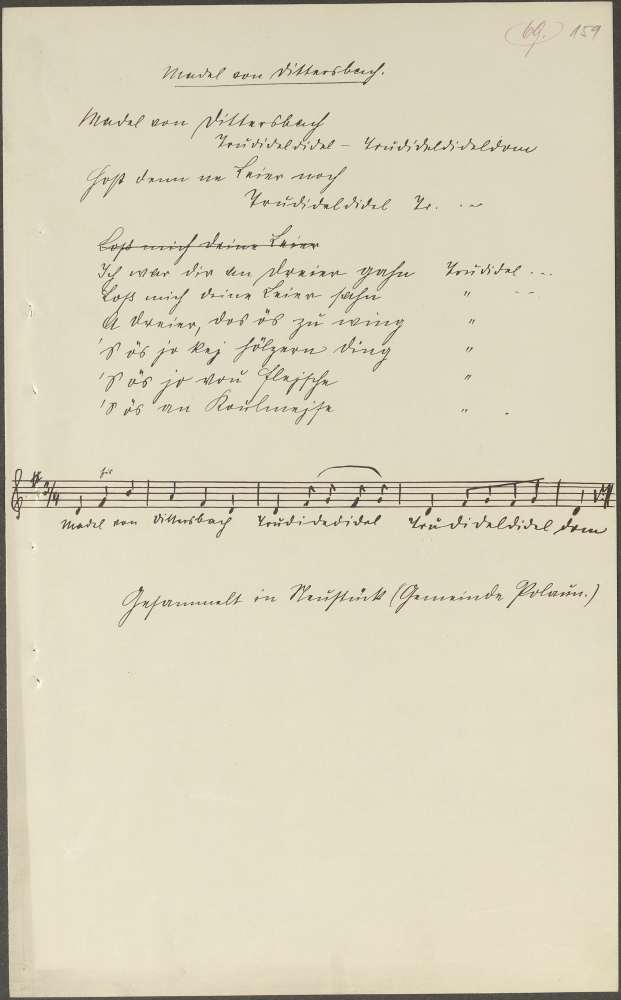 69. 159
Madel von Dittersbach.
Madel von Dittersbach
Trudideldidel – Trudideldideldom
Host denn ne Leier noch
Trudideldidel Tr. ..
Loß mich deine Leier
Ich war dir an Dreier gahn Trudidel ...
Loß mich deine Leier sahn " – –
A Dreier, dos ös zu wing "
'S ös jo kej hölzern Ding "
'S ös jo vou Flejsche "
'S ös an Koulmejse " .
3/4
Madel von Dittersbach Trudidedidel Trudideldidel dom
Gesammelt in Neustück (Gemeinde Polaun.)